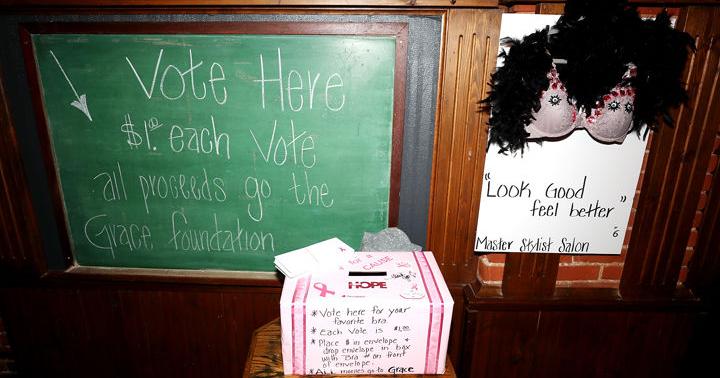 Vote Here
$1.00 each Vote
all proceeds go the
Grace foundation
"Look Good
feel better"
6
Master Stylist Salon
for a
CAUSE
HOPE
*Vote here for your
favorite bra
*Each Vote is $1.00
*Place $ in envelope +
drop envelope in box
with Bra # on front
of envelope.
*All monies go to Grace